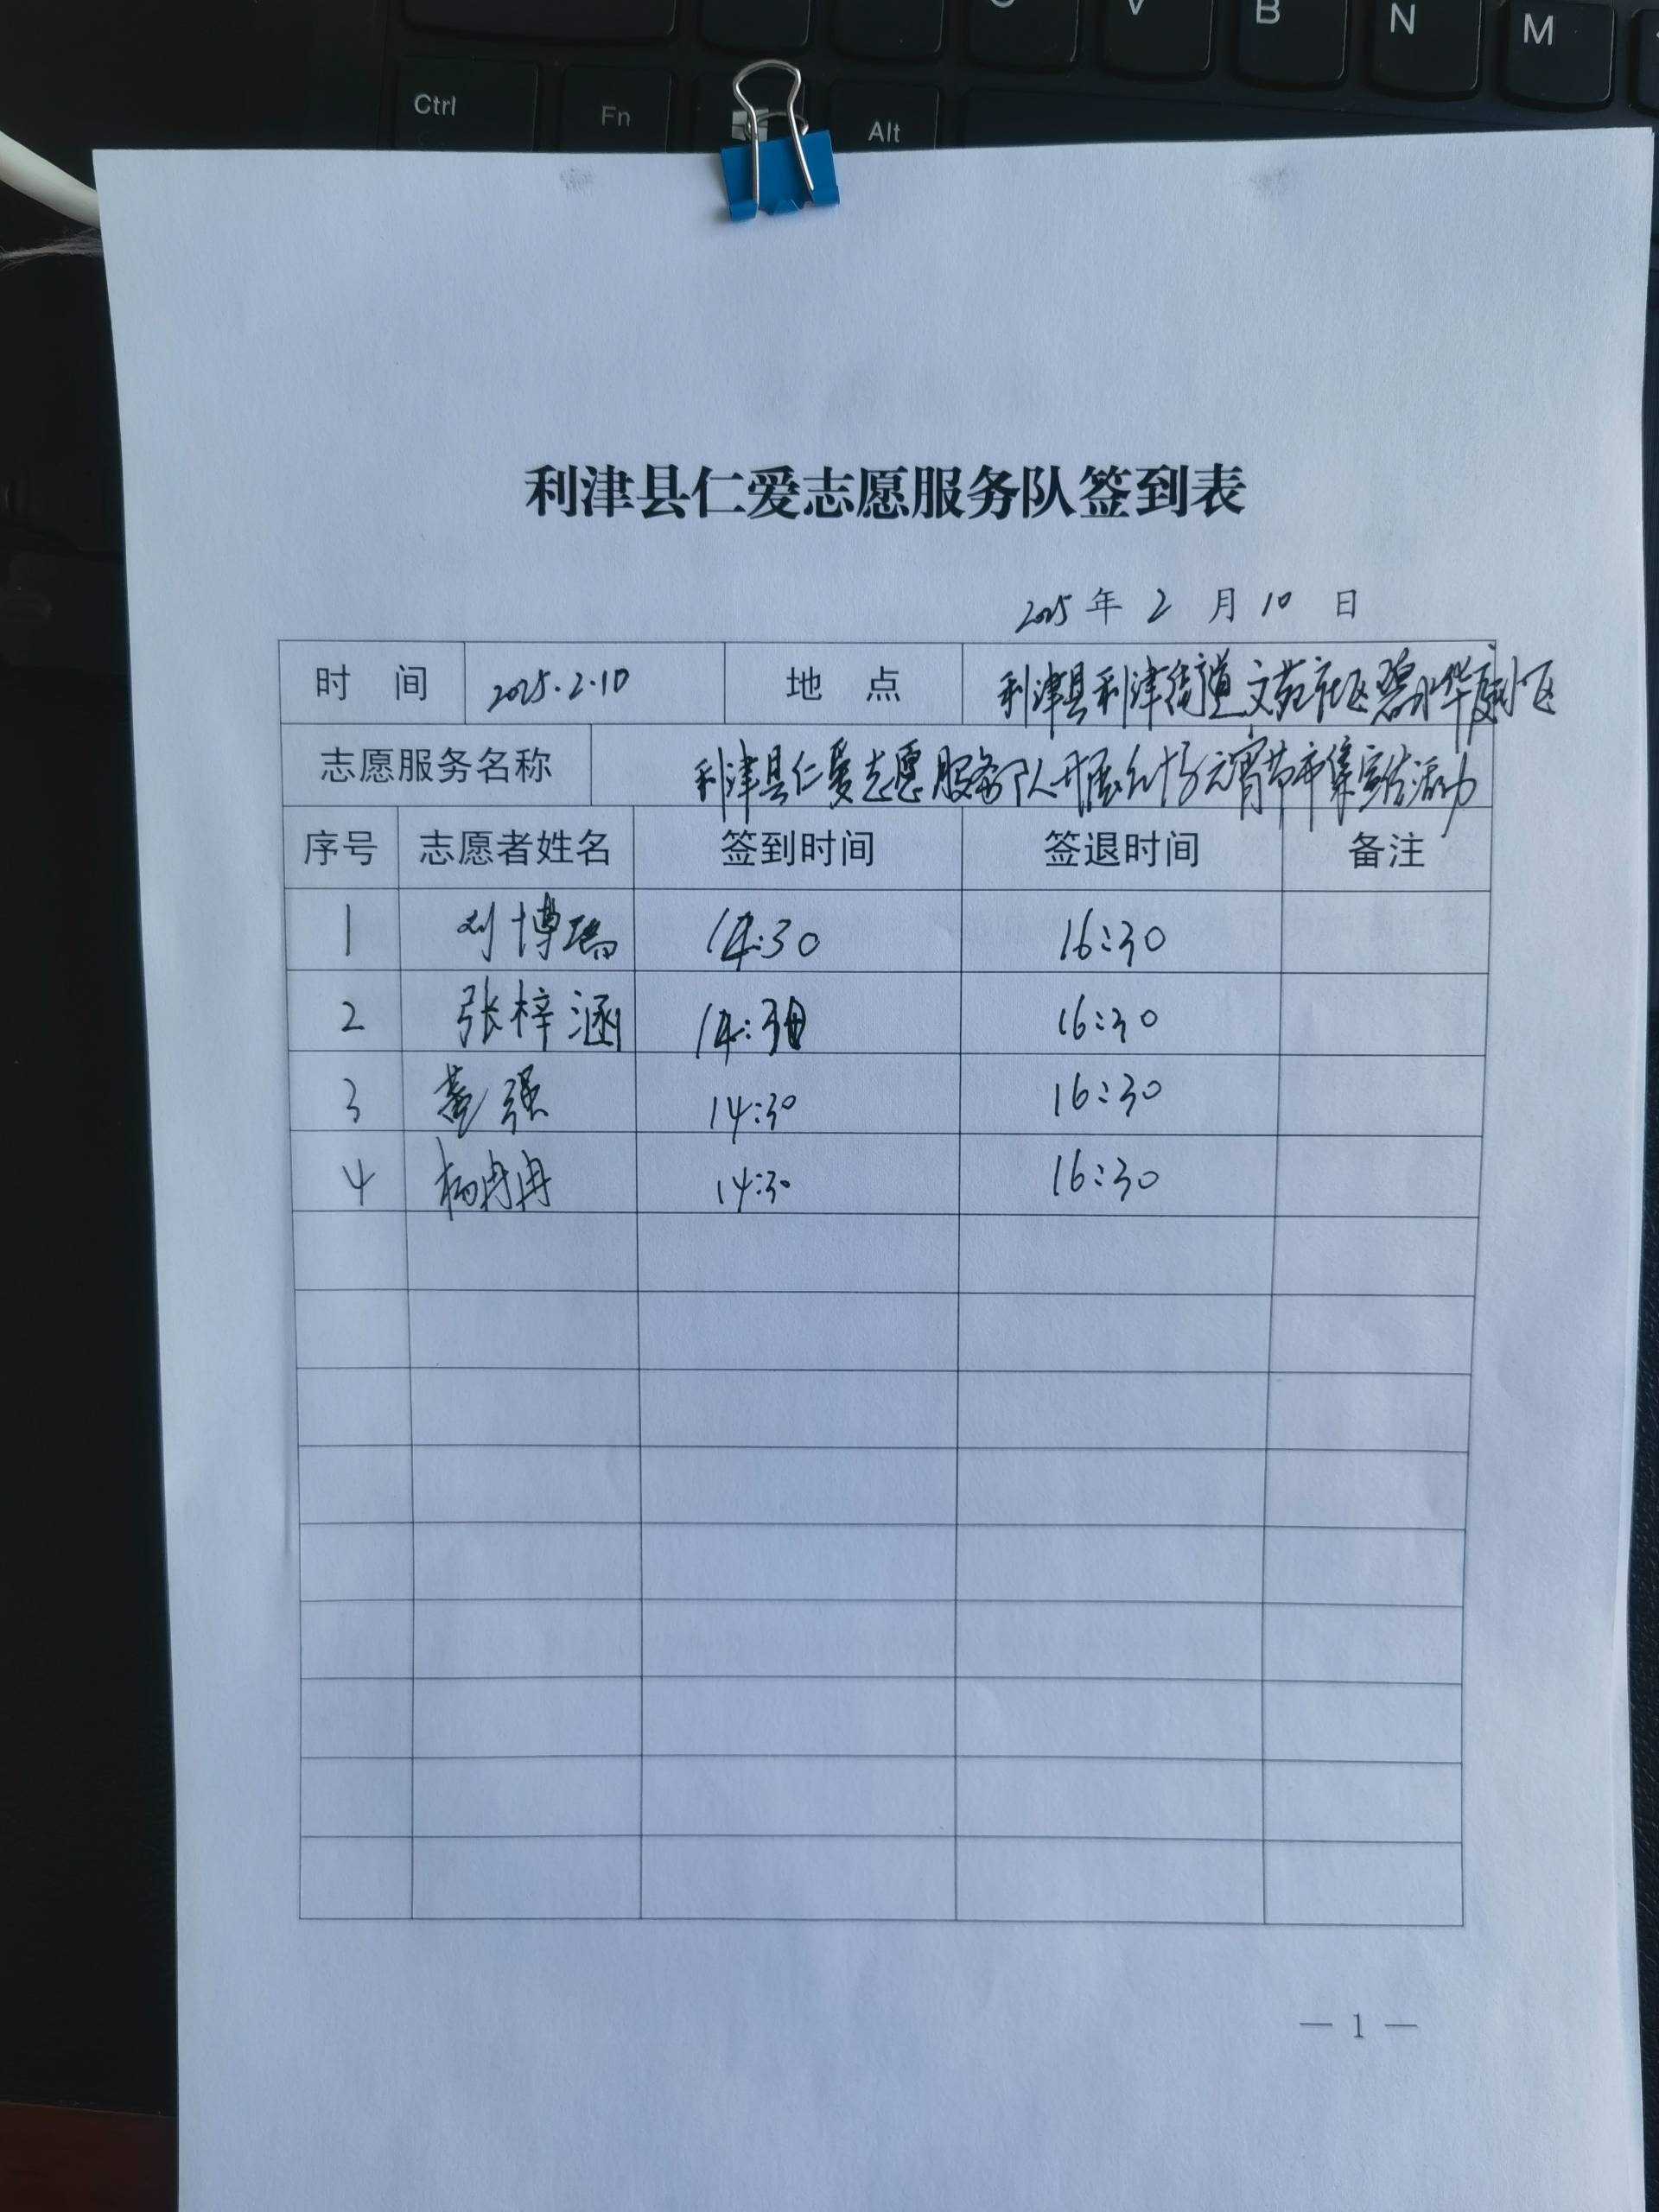 C V B N M
Ctrl Fn Alt
利津县仁爱志愿服务队签到表
2025年 2 月 10 日
时 间 2025.2.10 地 点 利津县利津街道文苑社区碧水华庭小区
志愿服务名称 利津县仁爱志愿服务队开展 元宵节市集宣传活动
序号 志愿者姓名 签到时间 签退时间 备注
1 刘博瑞 14:30 16:30
2 张梓涵 14:30 16:30
3 强 14:30 16:30
4 杨冉冉 14:30 16:30
— 1 —